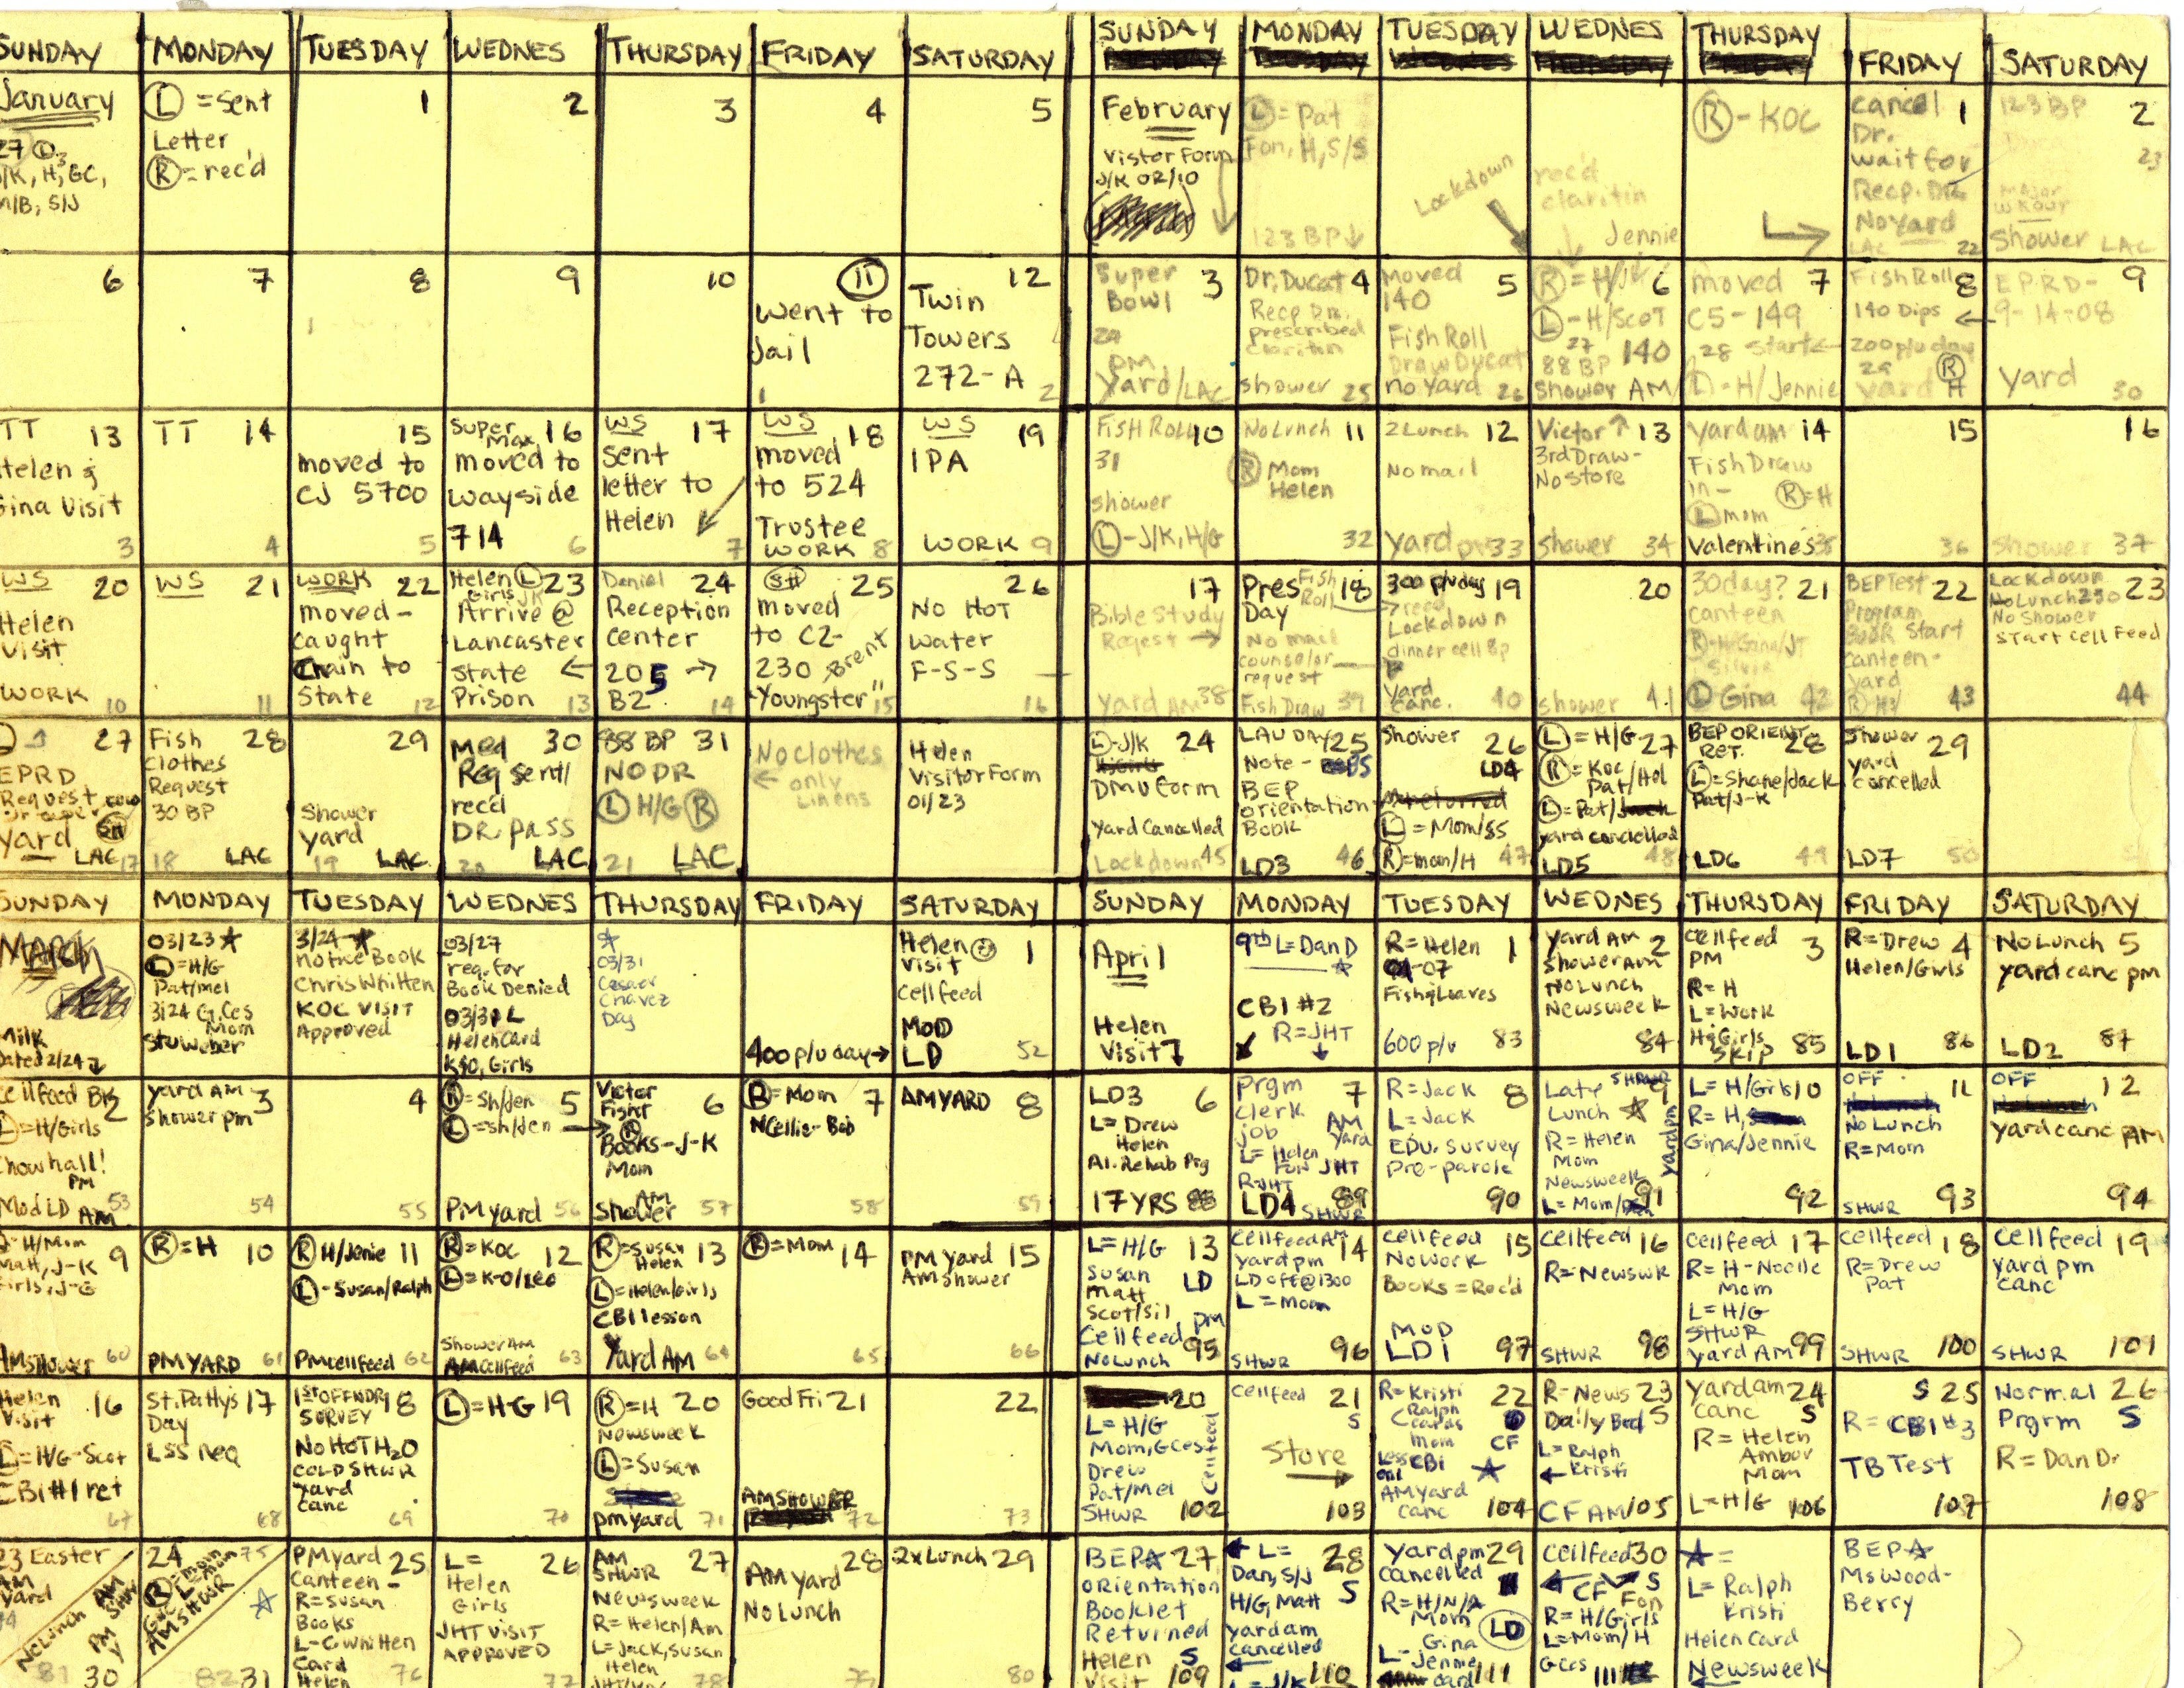 SUNDAY MONDAY TUESDAY WEDNES THURSDAY FRIDAY SATURDAY
January
27 L
J/K, H, GC,
M/B, S/J
L = Sent
Letter
R = rec'd
1
2
3
4
5
6
7
8
9
10
11
Went to
Jail
1
12
Twin
Towers
272-A
2
TT 13
Helen &
Gina Visit
3
TT 14
4
15
moved to
CJ 5700
5
Super
Max 16
moved to
Wayside
714 6
WS 17
Sent
letter to
Helen
7
WS 18
moved
to 524
Trustee
WORK 8
WS 19
IPA
WORK 9
WS 20
Helen
Visit
WORK 10
WS 21
11
WORK 22
moved-
caught
Chain to
State 12
Helen L 23
Girls JK
Arrive @
Lancaster
State
Prison 13
Daniel 24
Reception
Center
205
B2 14
25
moved
to C2-
230 Brent
"Youngster" 15
26
No Hot
Water
F-S-S
16
27
EPRD
Request
yard
LAC 17
Fish 28
Clothes
Request
30 BP
18 LAC
29
Shower
yard
19 LAC
Med 30
Req sent/
rec'd
DR. PASS
20 LAC
88 BP 31
NO DR
L H/G R
21 LAC
No clothes
only
Linens
Helen
Visitor Form
01/23
SUNDAY MONDAY TUESDAY WEDNES THURSDAY FRIDAY SATURDAY
February
Vistor Form
J/K 02/10
L = Pat
Fon, H, S/S
123 BP
Lockdown
rec'd
claritin
Jennie
R - KOC
Cancel 1
Dr.
wait for
Recp. DR
No Yard
LAC 22
123 BP 2
23
Major
Shower LAC
Super 3
Bowl
PM
Yard/LAC
Dr. Ducat 4
Recp Dr.
prescribed
claritin
shower 25
Moved 5
140
Fish Roll
Draw Ducat
no yard 26
R = H/JK 6
L - H/Scot
27
88 BP 140
Shower AM
moved 7
C5-149
28 Start
L - H/Jennie
Fish Roll 8
140 Dips
200 p/u day
29 R
yard H
EPRD- 9
9-14-08
Yard 30
Fish Roll 10
31
shower
L - J/K, H/G
No Lunch 11
R Mom
Helen
32
2 Lunch 12
No mail
Yard pm 33
Victor 13
3rd Draw-
No store
Shower 34
Yard am 14
Fish Draw
in - R=H
L mom
Valentines 35
15
36
16
shower 37
17
Bible Study
Reqest
yard AM 38
Pres Fish 18
Day Roll
No mail
counselor
request
Fish Draw 39
300 p/u day 19
Lockdown
dinner cell BP
Yard
canc. 40
20
shower 41
30 day? 21
canteen
R = H-Gina/JT
Silvie
L Gina 42
BEP Test 22
Program
Book Start
Canteen-
yard
43
Lockdown 23
No Lunch 230
No Shower
Start Cell Feed
44
L-J/K 24
DMV form
Yard Cancelled
Lockdown 45
LAU DAY 25
Note -
BEP
orientation
Book
LD3 46
Shower 26
LD4
L = Mom/SS
R = mom/H 47
L = H/G 27
R = KOC
Pat/Hel
L = Pat/
yard cancelled
LD5 48
BEP ORIENT 28
RET.
L = Shane/Jack
Pat/J-K
LD6 49
Shower 29
yard
cancelled
LD7 50
SUNDAY MONDAY TUESDAY WEDNES THURSDAY FRIDAY SATURDAY
MARCH
Milk
Dated 2/24
03/23
L = H/G
Pat/mel
3/24 G.Ces
Mom
Stu Weber
3/24
notre Book
Chris Whitten
KOC VISIT
Approved
03/27
req. for
Book Denied
03/31 L
Helen Card
KSO, Girls
03/31
Cesaer
Chavez
Day
400 p/u day
Helen 1
Visit
cell feed
MOD
LD 52
Cell feed BK 2
L = H/Girls
Chow hall!
PM
Mod LD AM 53
yard AM 3
Shower pm
54
4
55
R = Sh/Jen 5
L = Sh/Jen
PM yard 56
Victor 6
Fight
R
Books - J-K
Mom
AM
Shower 57
R = Mom 7
N Cellie - Bob
58
AM YARD 8
59
H/Mom 9
Matt, J-K
Girls, J-G
AM Shower 60
R = H 10
PM YARD 61
R H/Jenie 11
L - Susan/Ralph
PM cell feed 62
R = KOC 12
L = K-O/Leo
Shower AM
AM Cell feed 63
R = Susan 13
Helen
L = Helen/Girls
CBI lession
Yard AM 64
R = Mom 14
65
PM Yard 15
AM shower
66
Helen 16
Visit
L = H/G-Scot
CBI #1 ret
67
St. Pattys 17
Day
LSS req
68
1st OFFNDR 18
SURVEY
No HOT H2O
COLD SHWR
yard
canc
69
L = H-G 19
70
R = H 20
Newsweek
L = Susan
pm yard 71
Good Fri 21
AM SHOWER
72
22
73
23 Easter
AM
yard
74
No Lunch
30
24 75
R = mom
AM SHWR
31
PM yard 25
Canteen -
R = Susan
Books
L - C. Whitten
Card
Helen 76
L = 26
Helen
Girls
JHT VISIT
APPROVED
77
AM 27
SHWR
Newsweek
R = Helen/Am
L = Jack, Susan
Helen
78
28
AM yard
No Lunch
79
2x Lunch 29
80
SUNDAY MONDAY TUESDAY WEDNES THURSDAY FRIDAY SATURDAY
April
Helen
Visit
9th L = Dan D
CBI #2
R = JHT
R = Helen 1
07
Fish & Loaves
600 p/u 83
Yard AM 2
Shower AM
No Lunch
Newsweek
84
Cell feed 3
PM
R = H
L = Work
H & Girls
Skip 85
R = Drew 4
Helen/Girls
LD1 86
No Lunch 5
yard canc pm
LD2 87
LD3 6
L = Drew
Helen
Al. Rehab Prg
17 YRS 88
Prgm 7
clerk AM
job yard
L = Helen
Fon JHT
R = JHT
LD4 89
SHWR
R = Jack 8
L = Jack
EDU. Survey
Pre-parole
90
Late SHWR 9
Lunch
R = Helen
Mom
Newsweek
L = Mom/
91
yard pm
L = H/Girls 10
R = H,
Gina/Jennie
92
OFF 11
No Lunch
R = Mom
SHWR 93
OFF 12
yard canc AM
94
L = H/G 13
Susan LD
Matt
Scot/Sil
Cell feed pm
No Lunch 95
Cell feed AM 14
yard pm
LD off @ 1300
L = mom
SHWR 96
Cell feed 15
No Work
Books = Rec'd
MOD
LD1 97
Cell feed 16
R = Newswk
SHWR 98
Cell feed 17
R = H-Noelle
Mom
L = H/G
SHWR
yard AM 99
Cell feed 18
R = Drew
Pat
SHWR 100
Cell feed 19
yard pm
canc
SHWR 101
20
L = H/G
Mom, Gces
Drew
Pat/Mel
SHWR 102
Cell feed
Cell feed 21
S
Store
103
R = Kristi 22
Ralph
cards
Mom CF
CBI
AM yard
canc 104
R = News 23
Daily Bred S
L = Ralph
Kristi
CF AM 105
Yard am 24
canc S
R = Helen
Amber
Mom
L = H/G 106
S 25
R = CBI #3
TB Test
107
Normal 26
Prgrm S
R = Dan D.
108
BEP 27
Orientation
Booklet
Returned
Helen S
Visit 109
L = 28
Dan, S/J S
H/G, Matt
yard am
cancelled
L = J/K 110
Yard pm 29
cancelled
R = H/N/A
Mom
Gina LD
L - Jennie
card 111
Cell feed 30
CF S
Fon
R = H/Girls
L = Mom/H
Gces
L = Ralph
Kristi
Helen Card
Newsweek
BEP
Ms Wood-
Berry